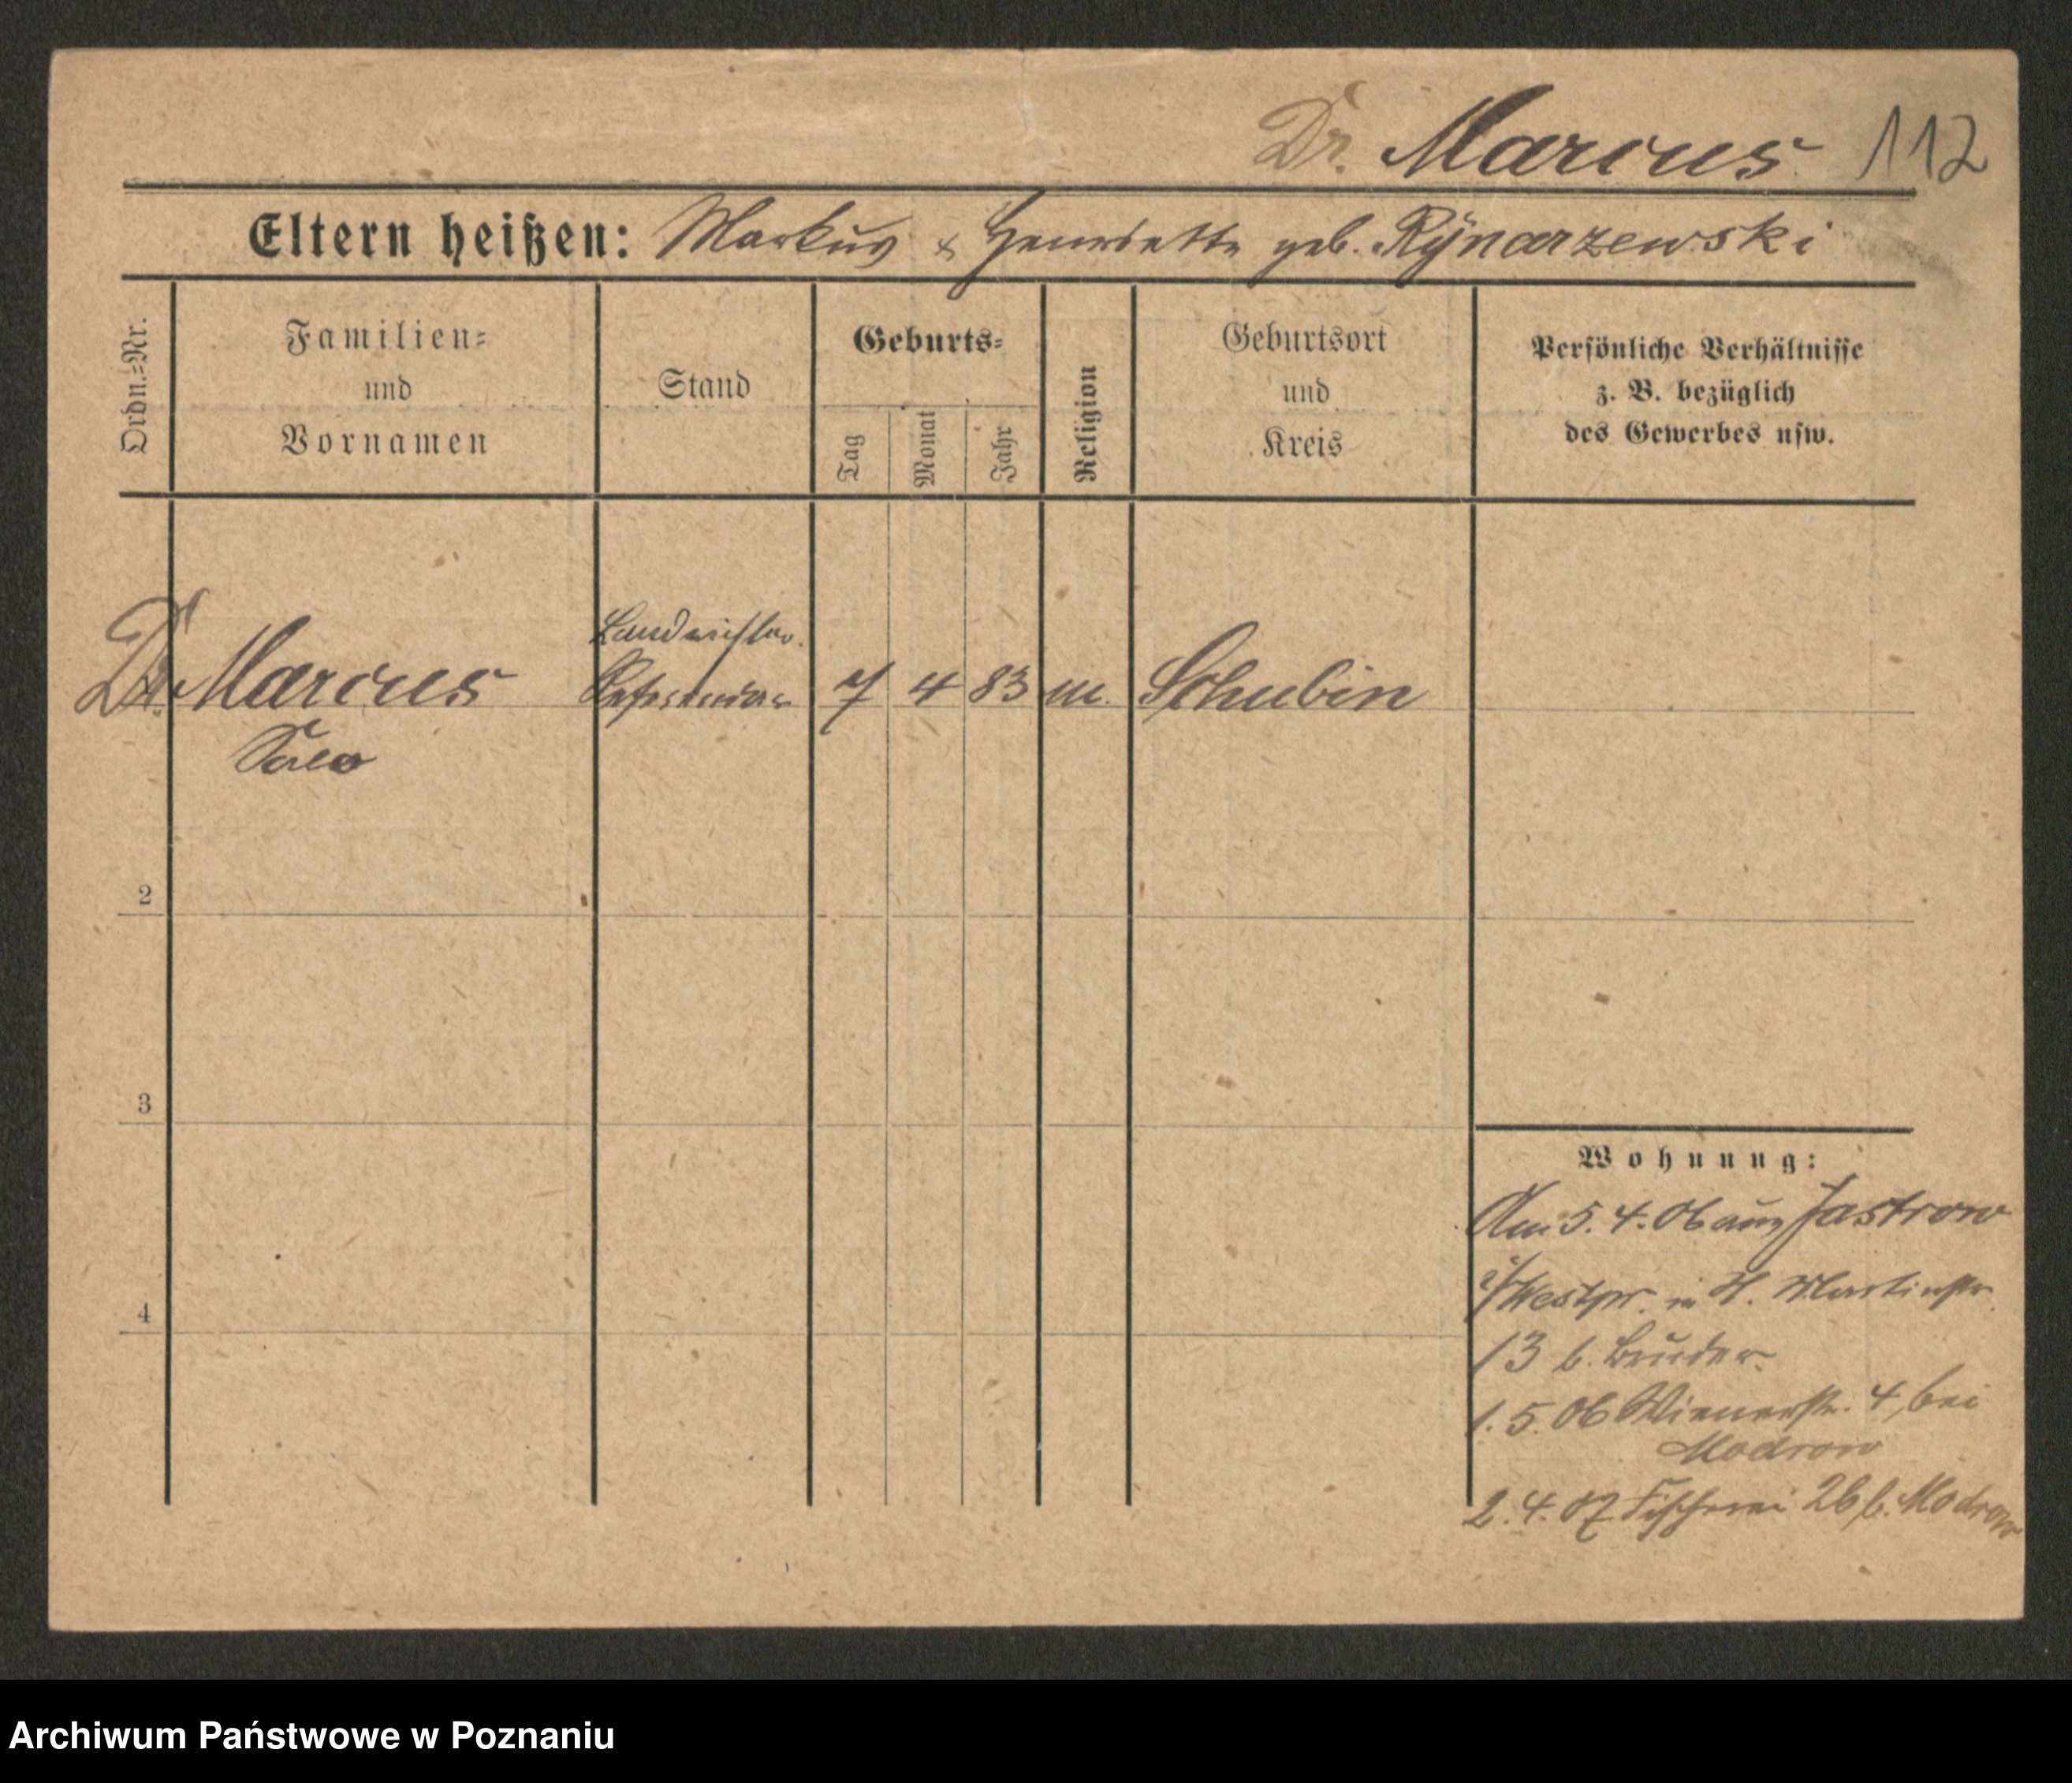 Dr. Marcus 112
Eltern heißen: Markus & Henriette geb. Rÿnarzewski
Ordn.-Nr.
Familien-
und
Vornamen
Stand
Geburts-
Tag
Monat
Jahr
Religion
Geburtsort
und
Kreis
Persönliche Verhältnisse
z. B. bezüglich
des Gewerbes usw.
Dr. Marcus
Landrichter
Referendar
7 4 83 m. Schubin
2
3
4
Wohnung:
Am 5. 4. 06 aus Jastrow
i/Westpr. in St. Martinstr.
13 b. Bruder.
1. 5. 06 Wienerstr. 4, bei
Modrow
2. 4. 07 Fischerei 26 b. Modrow
Archiwum Państwowe w Poznaniu